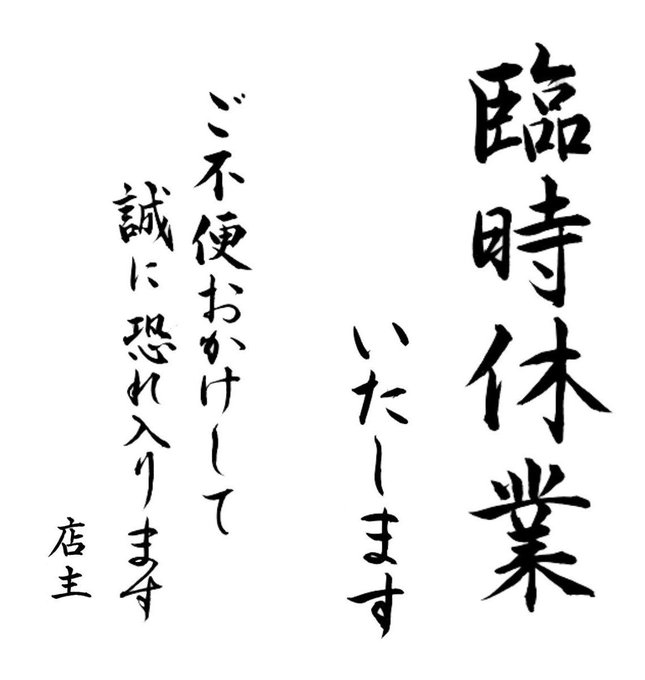 臨時休業
いたします
ご不便おかけして
誠に恐れ入ります
店主